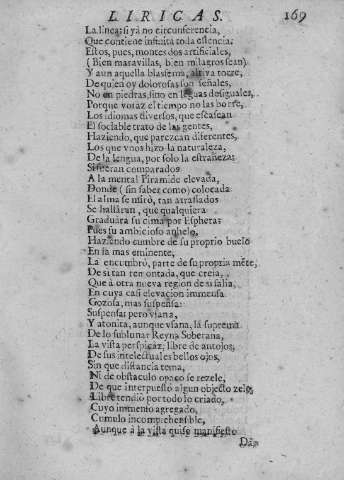 LIRICAS. 169
La linea; si yà no circunferencia,
Que contiene infinita toda essencia:
Estos, pues, montes dos artificiales,
(Bien maravillas, bien milagros sean)
Y aun aquella blasfema, altiva torre,
De quien oy dolorosas son señales,
No en piedras, sino en lenguas desiguales,
Porque voraz el tiempo no las borre,
Los idiomas diversos, que escasean
El sociable trato de las gentes,
Haziendo, que parezcan diferentes,
Los que vnos hizo la naturaleza,
De la lengua, por solo la estrañeza:
Si fueran comparados
A la mental Piramide elevada,
Donde (sin saber como) colocada
El alma se mirò, tan atrassados
Se hallaran, que qualquiera
Graduara su cima por Esphera:
Pues su ambicioso anhelo,
Haziendo cumbre de su proprio buelo
En la mas eminente,
La encumbrò, parte de su propria mẽte,
De si tan remontada, que creìa,
Que à otra nueva region de si salia,
En cuya casi elevacion immensa,
Gozosa, mas suspensa:
Suspensa; pero vfana,
Y atonita, aunque vfana, la suprema
De lo sublunar Reyna Soberana,
La vista perspicaz, libre de antojos,
De sus intelectuales bellos ojos,
Sin que distancia tema,
Ni de obstaculo opaco se rezele,
De que interpuesto algun objecto zele,
Libre tendiò por todo lo criado,
Cuyo immenso agregado,
Cumulo incomprehensible,
Aunque à la vista quiso manifiesto
Dar